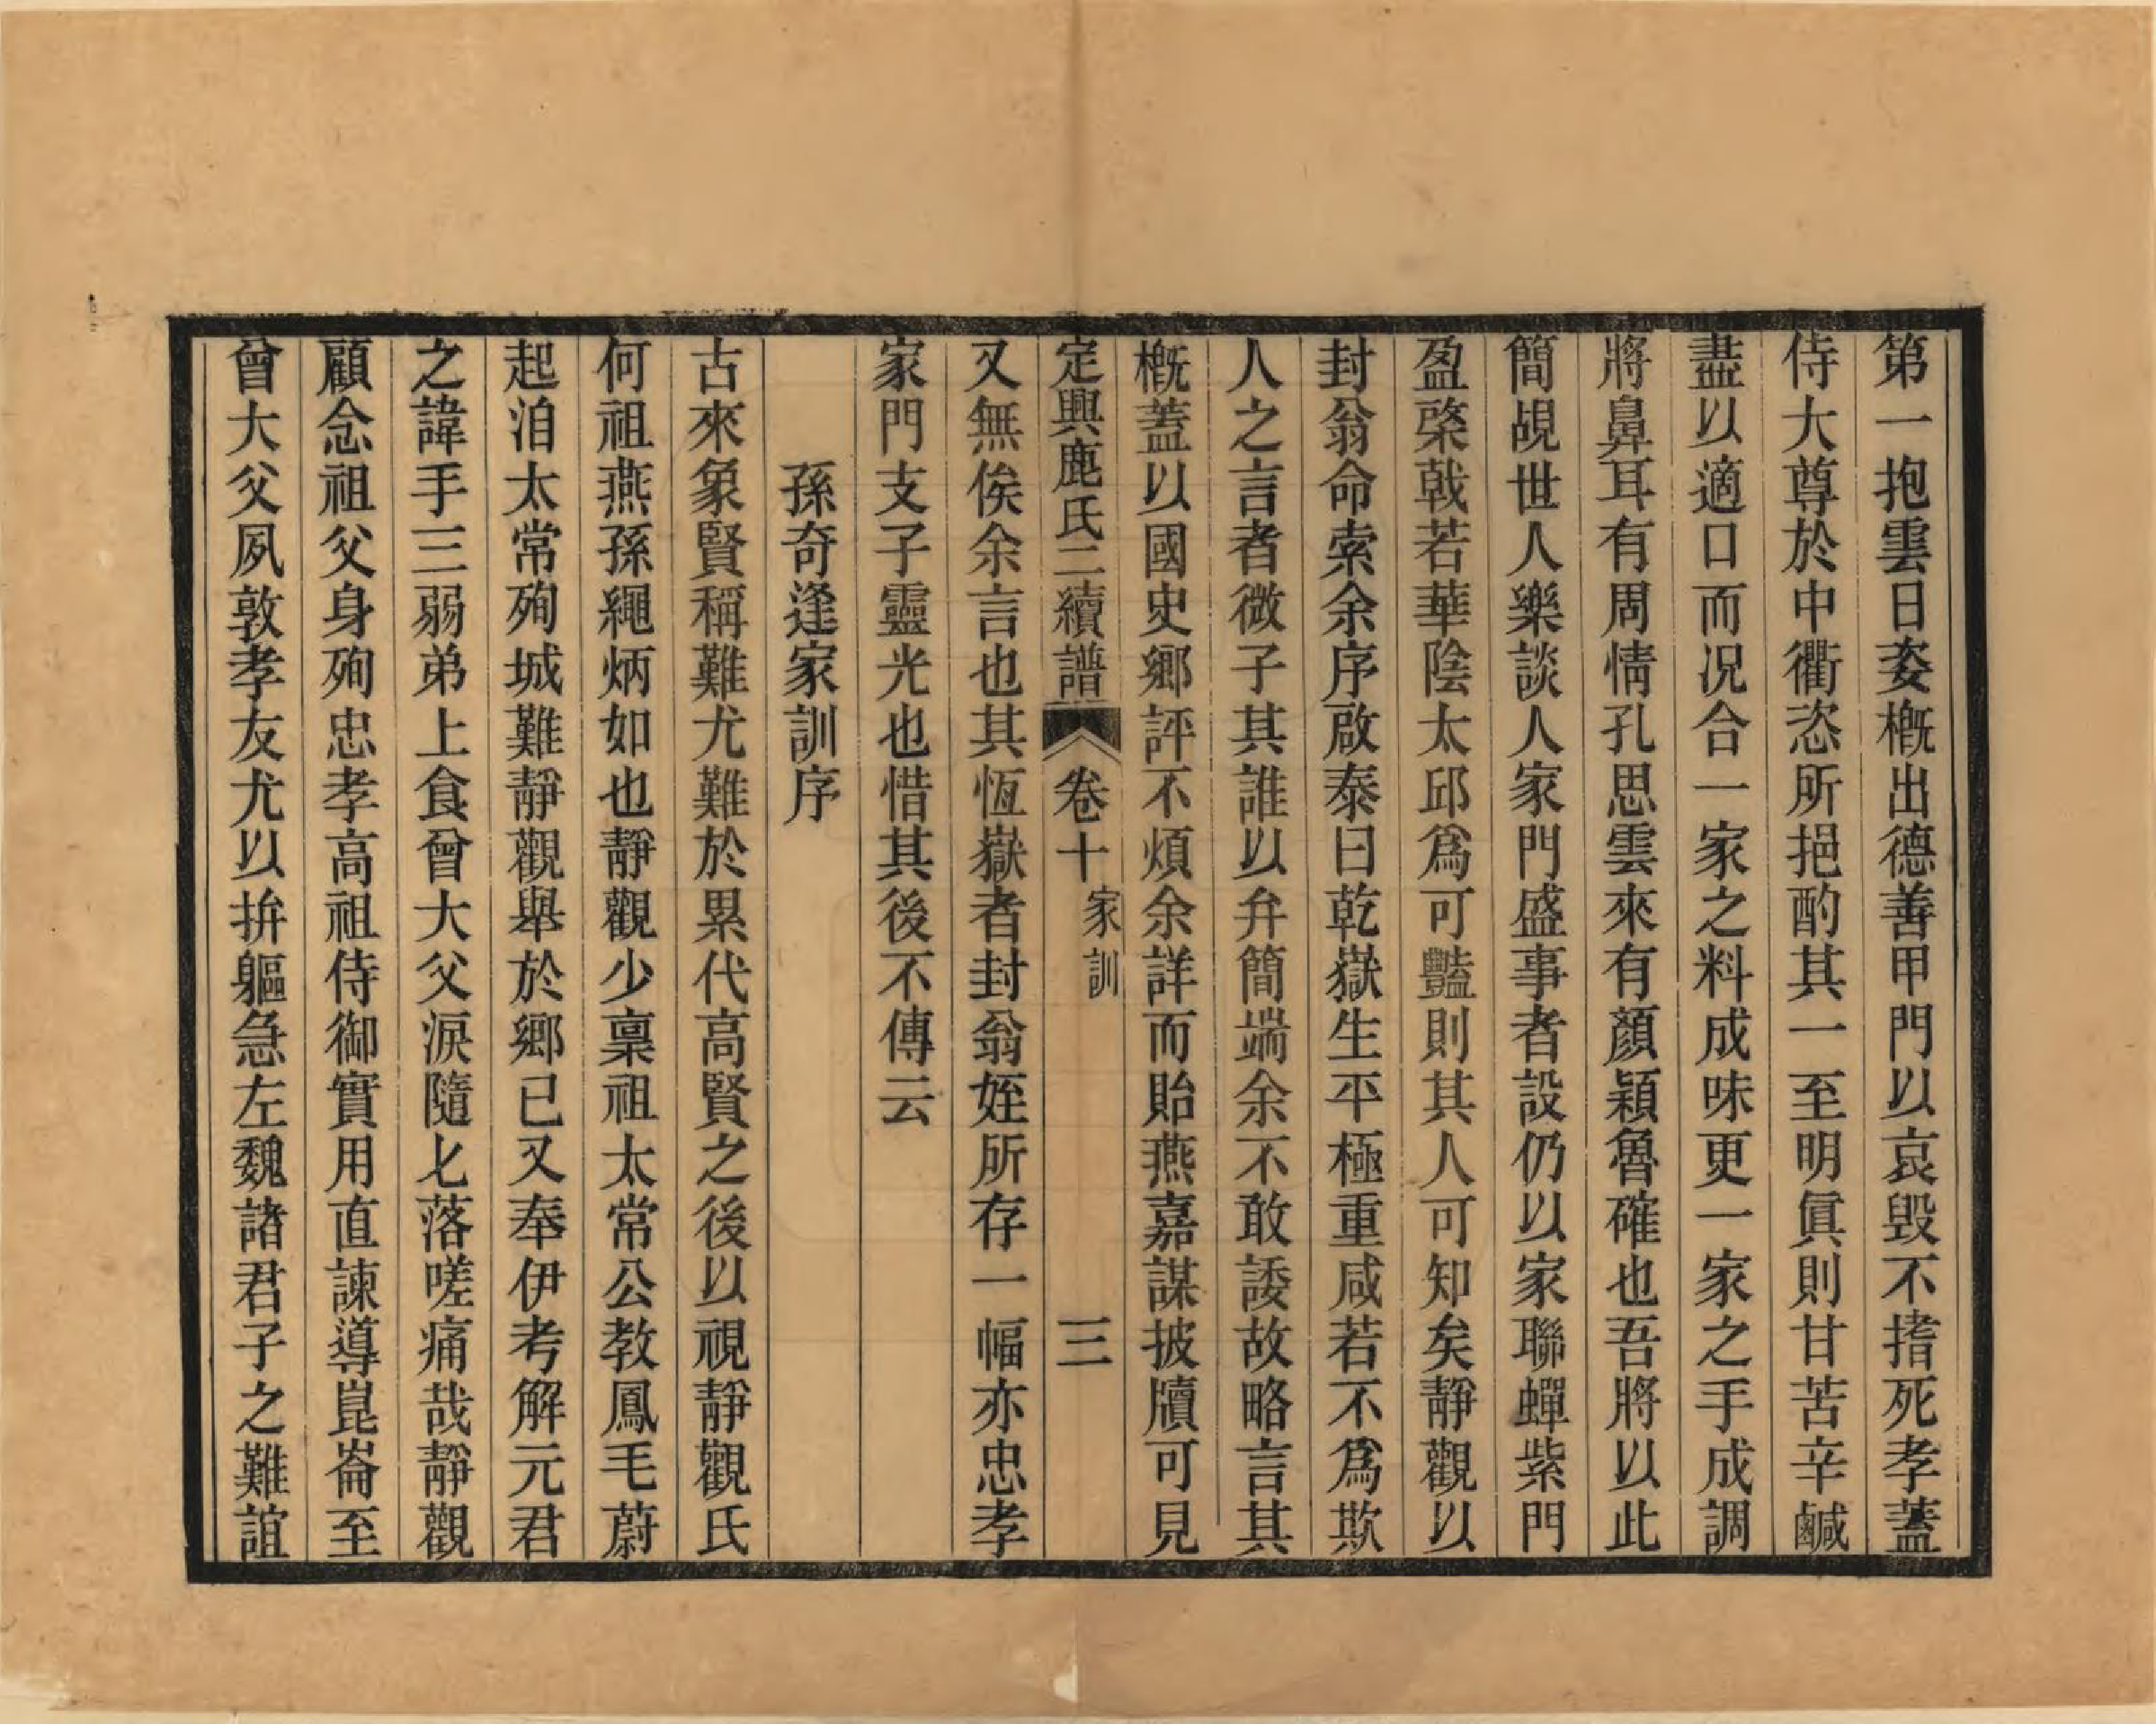 第一抱雲日姿槪出德善甲門以哀毀不揞死孝蓋
侍大尊於中衢恣所挹酌其一至明眞則甘苦辛鹹
盡以適口而况合一家之料成味更一家之手成調
將鼻耳有周情孔思雲來有顏穎魯確也吾將以此
簡覘世人樂談人家門盛事者設仍以家聯蟬紫門
盈棨戟若華陰太邱爲可豔則其人可知矣靜觀以
封翁命索余序啟泰曰乾嶽生平極重咸若不爲欺
人之言者微子其誰以弁簡端余不敢諉故略言其
槪蓋以國史鄉評不煩余詳而貽燕嘉謀披牘可見
定興鹿氏二續譜 卷十 家訓 三
又無俟余言也其恆嶽者封翁姪所存一幅亦忠孝
家門支子靈光也惜其後不傳云
孫奇逢家訓序
古來象賢稱難尤難於累代高賢之後以視靜觀氏
何祖燕孫繩炳如也靜觀少稟祖太常公教鳳毛蔚
起洎太常殉城難靜觀舉於鄉已又奉伊考解元君
之諱手三弱弟上食曾大父淚隨匕落嗟痛哉靜觀
顧念祖父身殉忠孝高祖侍御實用直諫導崑崙至
曾大父夙敦孝友尤以拚軀急左魏諸君子之難誼